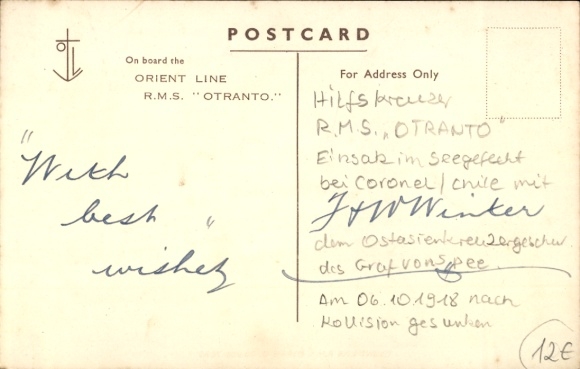 POSTCARD
On board the
ORIENT LINE
R.M.S. "OTRANTO."
For Address Only
"With
best "
wishes
Hilfskreuzer
R.M.S. „OTRANTO"
Einsatz im Seegefecht
bei Coronel/Chile mit
Winker
dem Ostasienkreuzergeschw.
des Graf von Spee.
Am 06.10.1918 nach
Kollision gesunken
12€